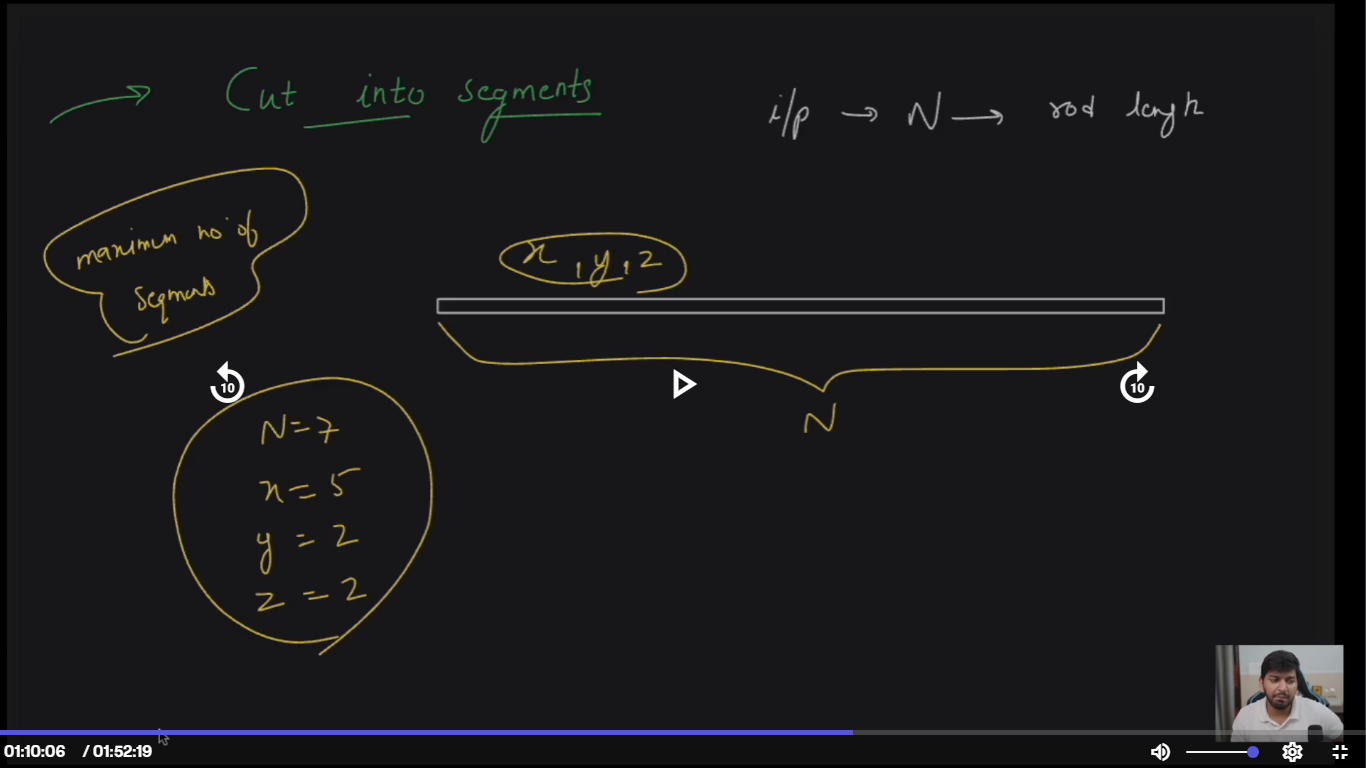 Cut into segments
i/p → N → rod length
maximum no of
segments
x, y, z
10
10
N
N = 7
x = 5
y = 2
z = 2
01:10:06 / 01:52:19